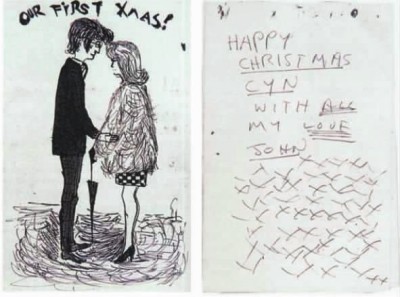 OUR FIRST XMAS!
HAPPY
CHRISTMAS
CYN
WITH ALL
MY LOVE
JOHN